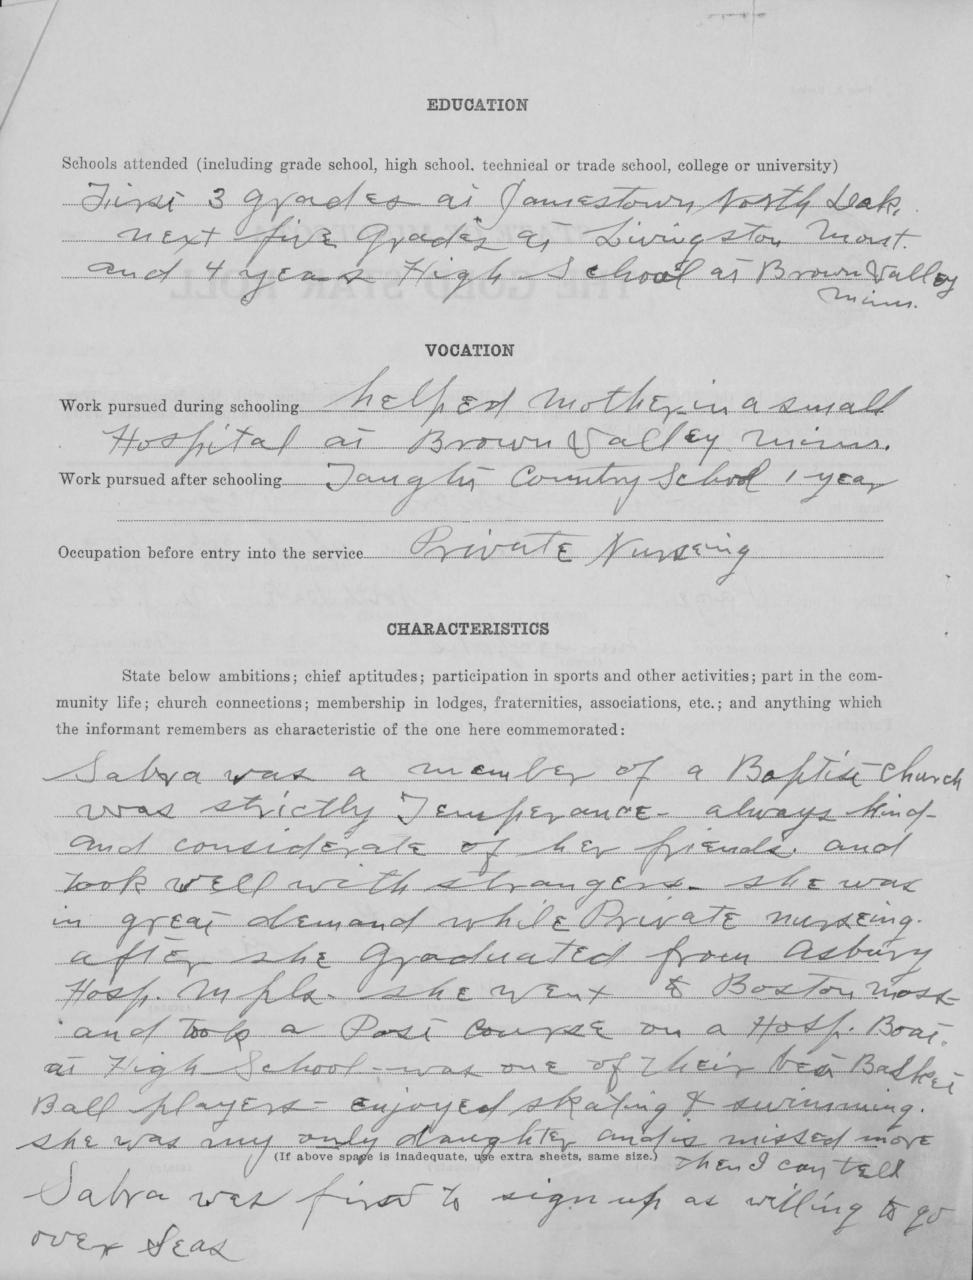 EDUCATION
Schools attended (including grade school, high school, technical or trade school, college or university)
First 3 grades at Jamestown North Dak.
next five Grades at Livingston Mont.
and 4 years High School at Brown Valley
Minn.
VOCATION
Work pursued during schooling helped Mother in a small
Hospital at Brown Valley Minn.
Work pursued after schooling Taught Country School 1 year
Occupation before entry into the service Private Nurseing
CHARACTERISTICS
State below ambitions; chief aptitudes; participation in sports and other activities; part in the com-
munity life; church connections; membership in lodges, fraternities, associations, etc.; and anything which
the informant remembers as characteristic of the one here commemorated:
Sabra was a member of a Baptist church
was strictly Temperance - always kind -
and considerate of her friends. and
took well with strangers - she was
in great demand while Private nurseing.
after she Graduated from Asbury
Hosp. Mpls - she went to Boston Mass -
and took a Post Course on a Hosp. Boat.
at High School - was one of their best Basket
Ball players - enjoyed skating & swimming.
she was my only daughter and is missed more
(If above space is inadequate, use extra sheets, same size.) then I can tell
Sabra was first to sign up as willing to go
over Seas